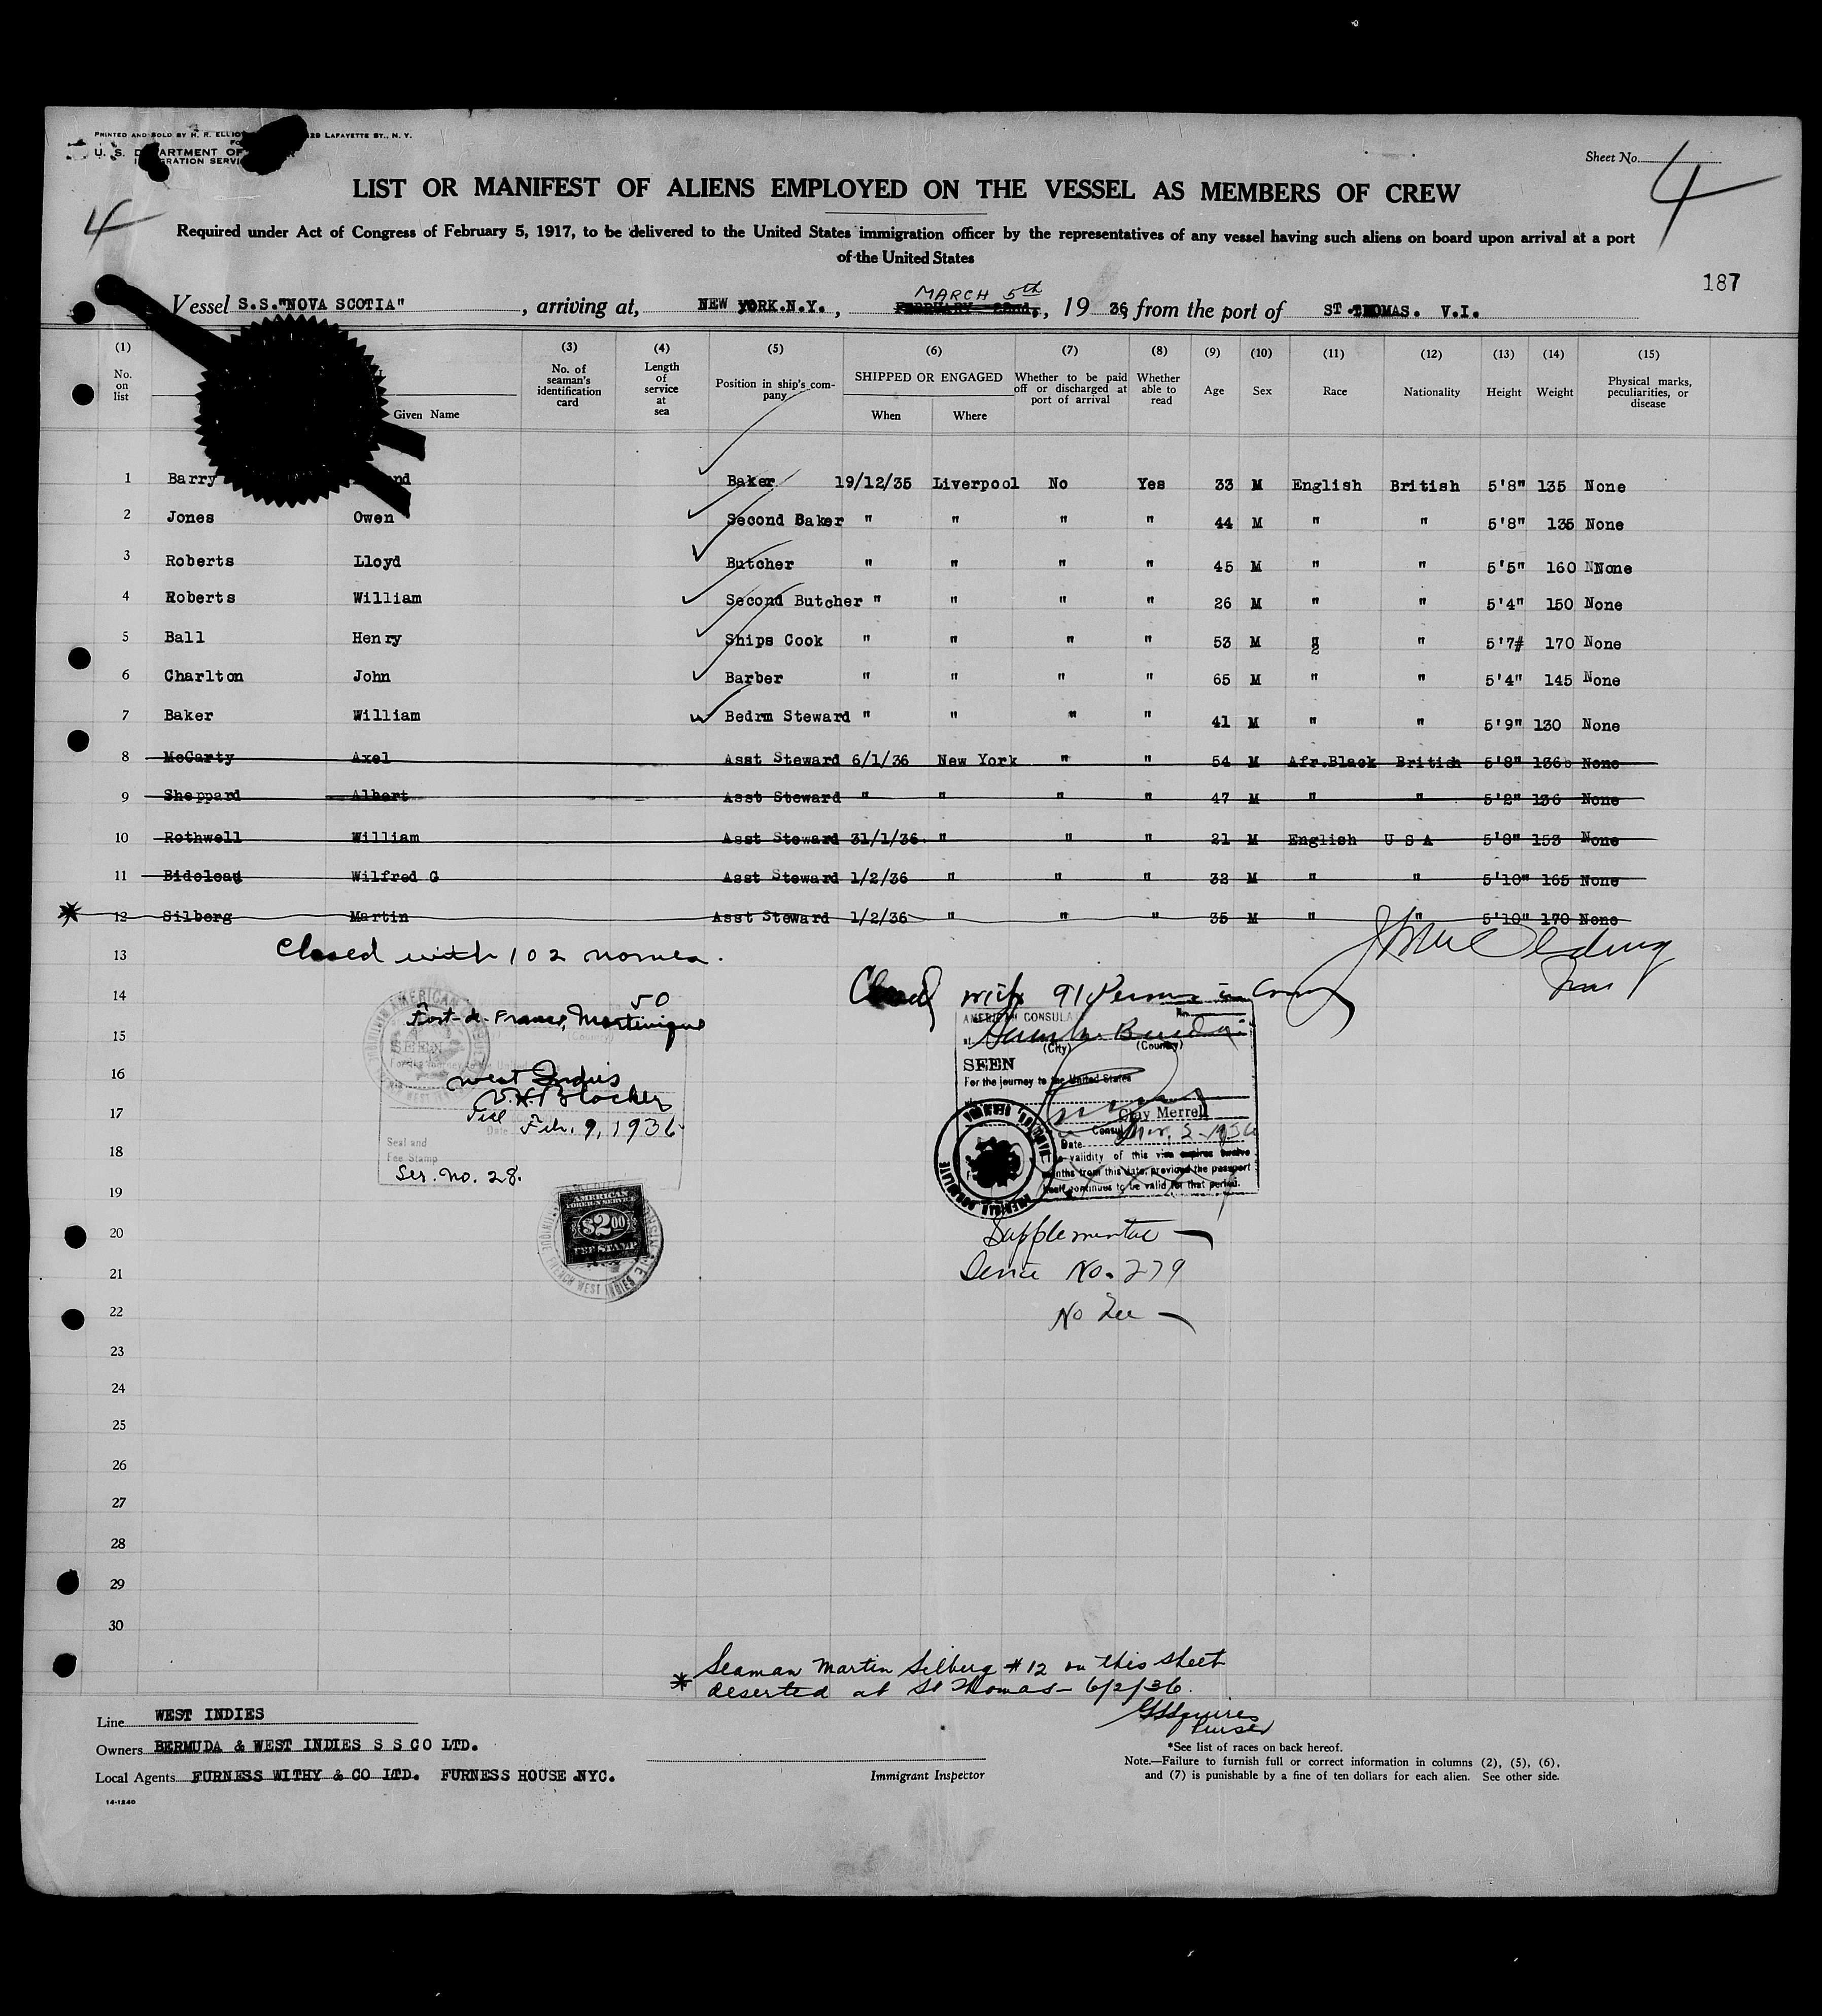 PRINTED AND SOLD BY H. R. ELLIO 29 LAFAYETTE ST., N. Y.
U. S. D ARTMENT OF
GRATION SERVI
Sheet No. 4
LIST OR MANIFEST OF ALIENS EMPLOYED ON THE VESSEL AS MEMBERS OF CREW
4
Required under Act of Congress of February 5, 1917, to be delivered to the United States immigration officer by the representatives of any vessel having such aliens on board upon arrival at a port
of the United States
187
MARCH 5th
Vessel S.S."NOVA SCOTIA", arriving at, NEW YORK.N.Y., FEBRUARY 22nd., 19 36 from the port of ST.THOMAS. V.I.
(1) (3) (4) (5) (6) (7) (8) (9) (10) (11) (12) (13) (14) (15)
No. on list Given Name No. of seaman's identification card Length of service at sea Position in ship's company SHIPPED OR ENGAGED When Where Whether to be paid off or discharged at port of arrival Whether able to read Age Sex Race Nationality Height Weight Physical marks, peculiarities, or disease
1 Barry nd Baker 19/12/35 Liverpool No Yes 33 M English British 5'8" 135 None
2 Jones Owen Second Baker " " " " 44 M " " 5'8" 135 None
3 Roberts Lloyd Butcher " " " " 45 M " " 5'5" 160 NNone
4 Roberts William Second Butcher " " " " 26 M " " 5'4" 150 None
5 Ball Henry Ships Cook " " " " 53 M " 5'7# 170 None
6 Charlton John Barber " " " " 65 M " " 5'4" 145 None
7 Baker William Bedrm Steward " " " " 41 M " " 5'9" 130 None
8 McCarty Axel Asst Steward 6/1/36 New York " " 54 M Afr.Black British 5'8" 136 None
9 Sheppard Albert Asst Steward " " " " 47 M " " 5'2" 136 None
10 Rothwell William Asst Steward 31/1/36. " " " 21 M English U S A 5'8" 153 None
11 Wilfred G Asst Steward 1/2/36 " " " 32 M " " 5'10" 165 None
* 12 Silberg Martin Asst Steward 1/2/36 " " " 35 M " " 5'10" 170 None
13 Closed with 102 names.
14 Closed with 91 Persons in Crew
50
Fort-de-France, Martinique
15
SEEN
16
West Indies
V.H. Blocker
17
Feb. 9, 1936
Date
Seal and
Fee Stamp
18
Ser. No. 28.
AMERICAN CONSULA
No.
(City) (Country)
SEEN
For the journey to the United States
Clay Merrell
Consul
Date Mar. 2-1936
validity of this visa expires twelve
months from this date, provided the passport
itself continues to be valid for that period.
19
AMERICAN
FOREIGN SERVICE
$2.00
FEE STAMP
FRENCH WEST INDIES
20 Supplemental
21 No. 279
22 No Fee
23
24
25
26
27
28
29
30
* Seaman Martin Silberg #12 on this sheet
deserted at St Thomas - 6/2/36.
GSSquires
Purser
Line WEST INDIES
Owners BERMUDA & WEST INDIES S S CO LTD.
Local Agents FURNESS WITHY & CO LTD. FURNESS HOUSE NYC.
Immigrant Inspector
*See list of races on back hereof.
Note.—Failure to furnish full or correct information in columns (2), (5), (6),
and (7) is punishable by a fine of ten dollars for each alien. See other side.
14-1240